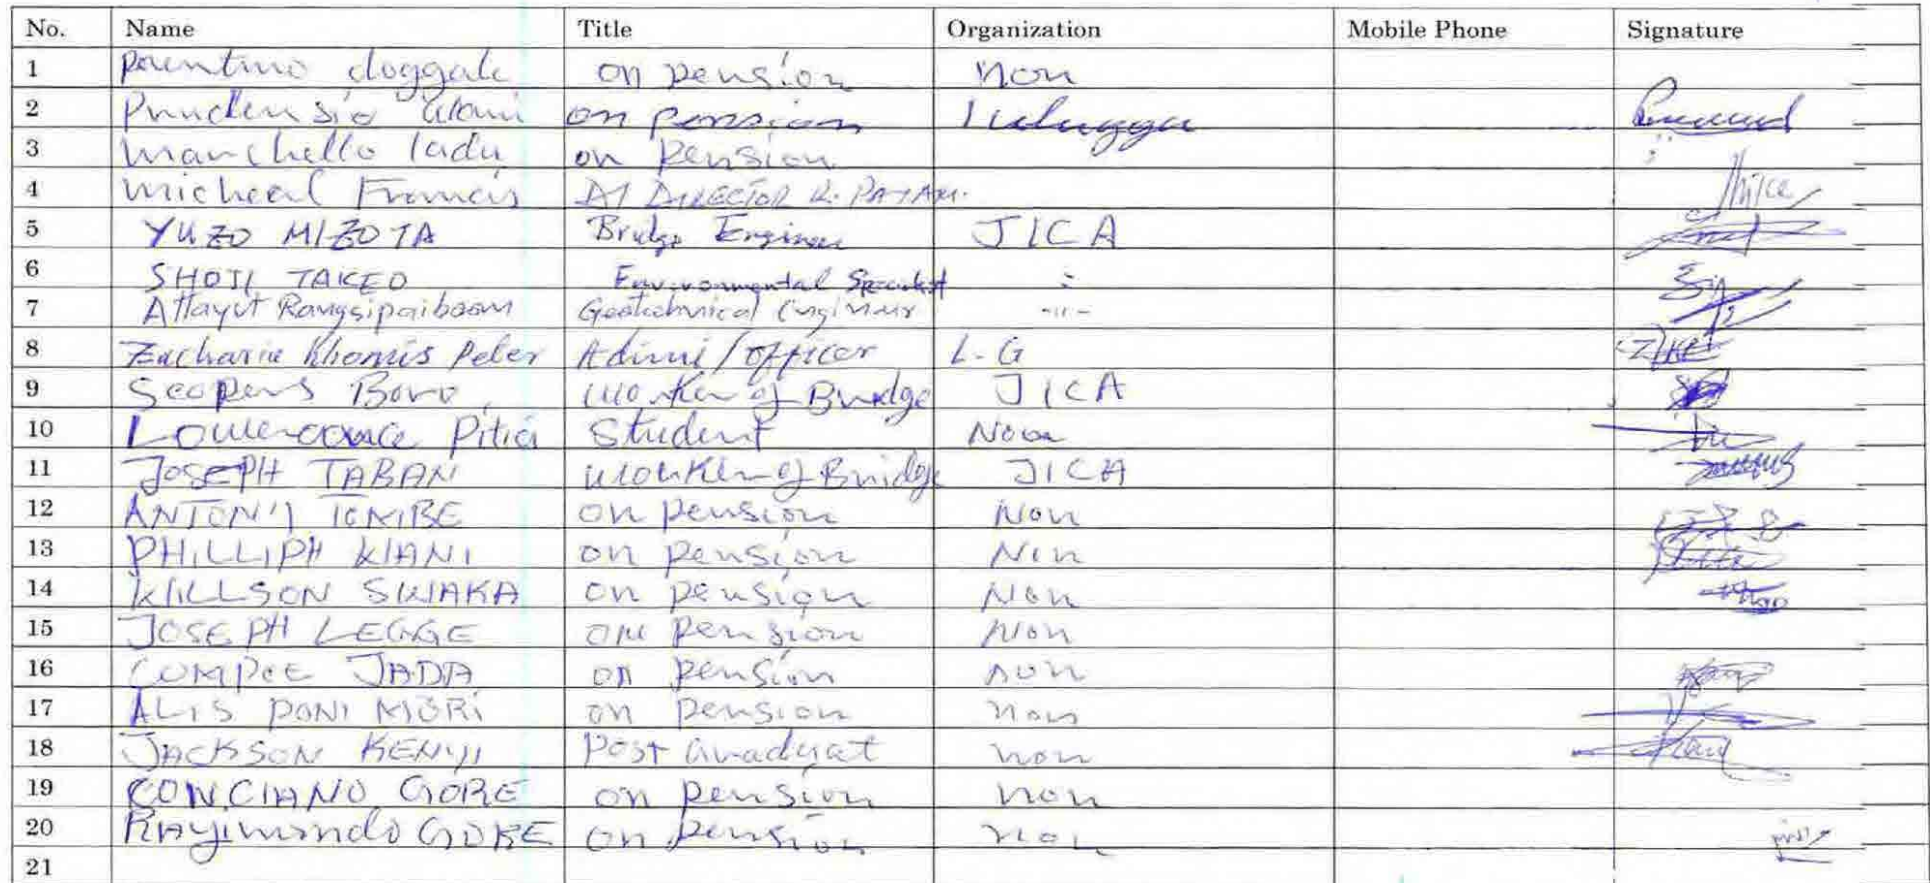 No. Name Title Organization Mobile Phone Signature
1 doggale on pension non
2 Prudensio on pension
3 Marchello ladu on pension
4 Micheal Francis DIRECTOR K. PAYAM.
5 YUZO MIZOTA Bridge Engineer JICA
6 SHOJI TAKEO Environmental Specialist :
7 Attayut Rangsipaiboon Geotechnical Enginner -"-
8 Zacharia Khamis Peter Admi/officer L.G
9 Scopens Boro worker of Bridge JICA
10 Pitia Student Non
11 JOSEPH TABAN worker of Bridge JICA
12 TOMBE on pension Non
13 PHILLIPH KIANI on pension Non
14 WILLSON SWAKA on pension Non
15 JOSEPH LEGGE on pension Non
16 JADA on pension non
17 ALIS PONI MORI on pension non
18 JACKSON KENYI Post Graduat non
19 CON.CIANO GORE on pension non
20 RAYimondo GORE on pension non
21